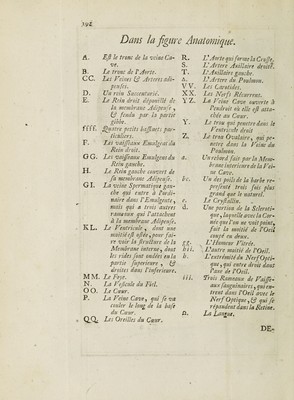 192
Dans la figure Anatomique.
A. Est le tronc de la veine Cave.
B. Le tronc de l'Aorte.
CC. Les Veines & Arteres adipenses.
D. Un rein Succenturié.
E. Le Rein droit dépouillé de
la membrane Adipense,
& fendu par la partie
gibbe.
ffff. Quatre petits bassinets particuliers.
F. Les vaisseaux Emulgens du
Rein droit.
GG. Les vaisseaux Emulgens du
Rein gauche.
H. Le Rein gauche couvert de
sa membrane Adipense.
GI. La veine Spermatique gauche
qui entre à l'ordinaire
dans l'Emulgente,
mais qui a trois autres
rameaux qui l'attachent
à la membrane Adipense.
KL. Le Ventricule, dont une
moitié est ostée, pour faire
voir la structure de la
Membrane interne, dont
les rides sont ondées en la
partie superieure, &
droites dans l'inferieure.
MM. Le Foye.
N. La Vesicule du Fiel.
OO. Le Cœur.
P. La Veine Cave, qui se va
couler le long de la base
du Cœur.
QQ. Les Oreilles du Cœur.
R. L'Aorte qui forme la Crosse.
S. L'Artere Axillaire droite.
T. L'Axillaire gauche.
L'Artere du Poulmon.
VV. Les Carotides.
XX. Les Nerfs Récurrens.
YZ. La Veine Cave ouverte à
l'endroit où elle est attachée
au Cœur.
Y. Le trou qui penetre dans le
Ventricule droit.
Z. Le trou Ovalaire, qui penetre
dans la Veine du
Poulmon.
a. Un rebord fait par la Membrane
interieure de la Veine
Cave.
bc. Un des poils de la barbe representé
trois fois plus
grand que le naturel.
c. Le Crystallin.
d. Une portion de la Sclerotique,
laquelle avec la Cornée
que l'on ne voit point,
fait la moitié de l'Oeil
coupé en deux.
gg. L'Humeur Vitrée.
hil. L'autre moitié de l'Oeil.
L'extremité du Nerf Optique,
qui entre droit dans
l'axe de l'Oeil.
iii. Trois Rameaux de Vaisseaux
sanguinaires, qui entrent
dans l'Oeil avec le
Nerf Optique, & qui se
répandent dans la Retine.
n. La Langue.
DE-